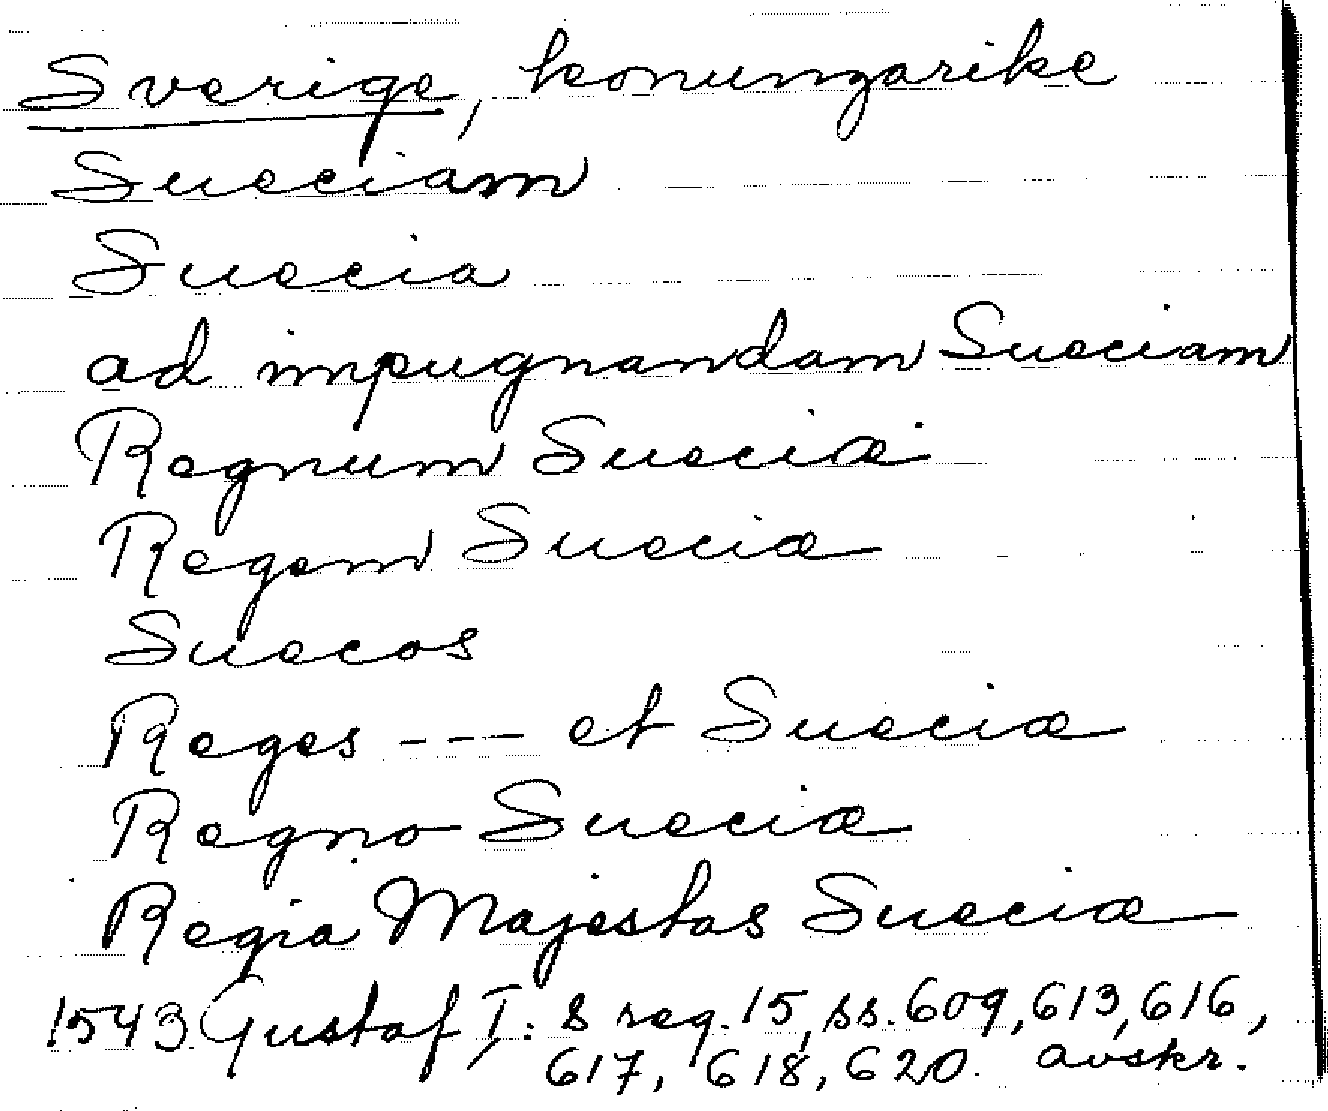 Sverige, konungarike
Sueciam
Suecia
ad impugnandam Sueciam
Regnum Sueciæ
Regem Sueciæ
Suecos
Reges --- et Sueciæ
Regno Sueciæ
Regia Majestas Sueciæ
1543 Gustaf I:s reg. 15, ss. 609, 613, 616,
617, 618, 620. avskr.